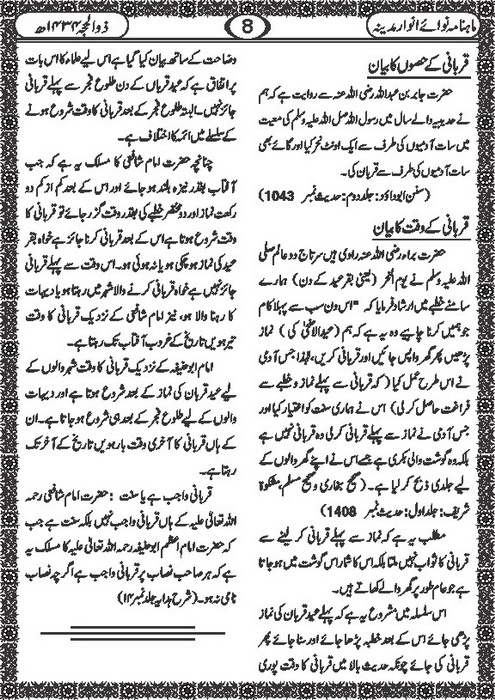 ماہنامہ نوائے انوار مدینہ
8
ذوالحجہ ۱۴۳۴ھ
قربانی کے حصوں کا بیان
حضرت جابر بن عبداللہ رضی اللہ عنہ سے روایت ہے کہ ہم
نے حدیبیہ والے سال میں رسول اللہ صل اللہ علیہ وسلم کی معیت
میں سات آدمیوں کی طرف سے ایک اونٹ نحر کیا اور گائے بھی
سات آدمیوں کی طرف سے قربان کی۔
(سنن ابوداؤد: جلد دوم: حدیث نمبر 1043)
قربانی کے وقت کا بیان
حضرت براء رضی اللہ عنہ راوی ہیں سرتاج دو عالم صلی
اللہ علیہ وسلم نے یوم النحر (یعنی بقر عید کے دن) ہمارے
سامنے خطبے میں ارشاد فرمایا کہ "اس دن سب سے پہلا کام
جو ہمیں کرنا چاہیے وہ یہ ہے کہ ہم (عیدالاضحیٰ کی) نماز
پڑھیں پھر گھر واپس جائیں اور قربانی کریں، لہٰذا جس آدمی
نے اس طرح عمل کیا (کہ قربانی سے پہلے نماز و خطبے سے
فراغت حاصل کر لی) اس نے ہماری سنت کو اختیار کیا اور
جس آدمی نے نماز سے پہلے قربانی کر لی وہ قربانی نہیں ہے
بلکہ وہ گوشت والی بکری ہے جسے اس نے اپنے گھر والوں کے
لیے جلدی ذبح کر لیا ہے۔ (صحیح بخاری و صحیح مسلم مشکوۃ
شریف: جلد اول: حدیث نمبر 1408)
مطلب یہ ہے کہ نماز سے پہلے قربانی کر لینے سے
قربانی کا ثواب نہیں ملتا بلکہ اس کا شمار اس گوشت میں ہو جاتا
ہے جو عام طور پر گھر والے کھاتے ہیں۔
اس سلسلہ میں مشروع یہ ہے کہ پہلے عید قربان کی نماز
پڑھی جائے اس کے بعد خطبہ پڑھا جائے اور سنا جائے پھر
قربانی کی جائے چونکہ حدیث بالا میں قربانی کا وقت پوری
وضاحت کے ساتھ بیان کیا گیا ہے اس لیے علماء کا اس بات
پر اتفاق ہے کہ عید قرباں کے دن طلوع فجر سے پہلے قربانی
جائز نہیں۔ البتہ طلوع فجر کے بعد قربانی کا وقت شروع ہونے
کے سلسلے میں ائمہ کا اختلاف ہے۔
چنانچہ حضرت امام شافعی کا مسلک یہ ہے کہ جب
آفتاب بقدر نیزہ بلند ہو جائے اور اس کے بعد کم از کم دو
رکعت نماز اور دو مختصر خطبے کی بقدر وقت گزر جائے تو قربانی کا
وقت شروع ہوتا ہے اس کے بعد قربانی کرنا جائز ہے خواہ بقر
عید کی نماز ہو چکی ہو یا نہ ہوئی ہو۔ اس وقت سے پہلے قربانی
جائز نہیں ہے خواہ قربانی کرنے والا شہر میں رہتا ہو یا دیہات
کا رہنا والا ہو، نیز امام شافعی کے نزدیک قربانی کا وقت
تیرہویں تاریخ کے غروب آفتاب تک رہتا ہے۔
امام ابوحنیفہ کے نزدیک قربانی کا وقت شہر والوں کے
لیے عید قربان کی نماز کے بعد شروع ہوتا ہے اور دیہات
والوں کے لیے طلوع فجر کے بعد ہی شروع ہو جاتا ہے۔ ان
کے ہاں قربانی کا آخری وقت بارہویں تاریخ کے آخر تک
رہتا ہے۔
قربانی واجب ہے یا سنت: حضرت امام شافعی رحمہ
اللہ تعالیٰ علیہ کے ہاں قربانی واجب نہیں بلکہ سنت ہے جب
کہ حضرت امام اعظم ابوحنیفہ رحمہ اللہ تعالیٰ علیہ کا مسلک یہ
ہے کہ ہر صاحب نصاب پر قربانی واجب ہے اگرچہ نصاب
نامی نہ ہو۔ (شرح ہدایہ جلد نمبر ۱۴)